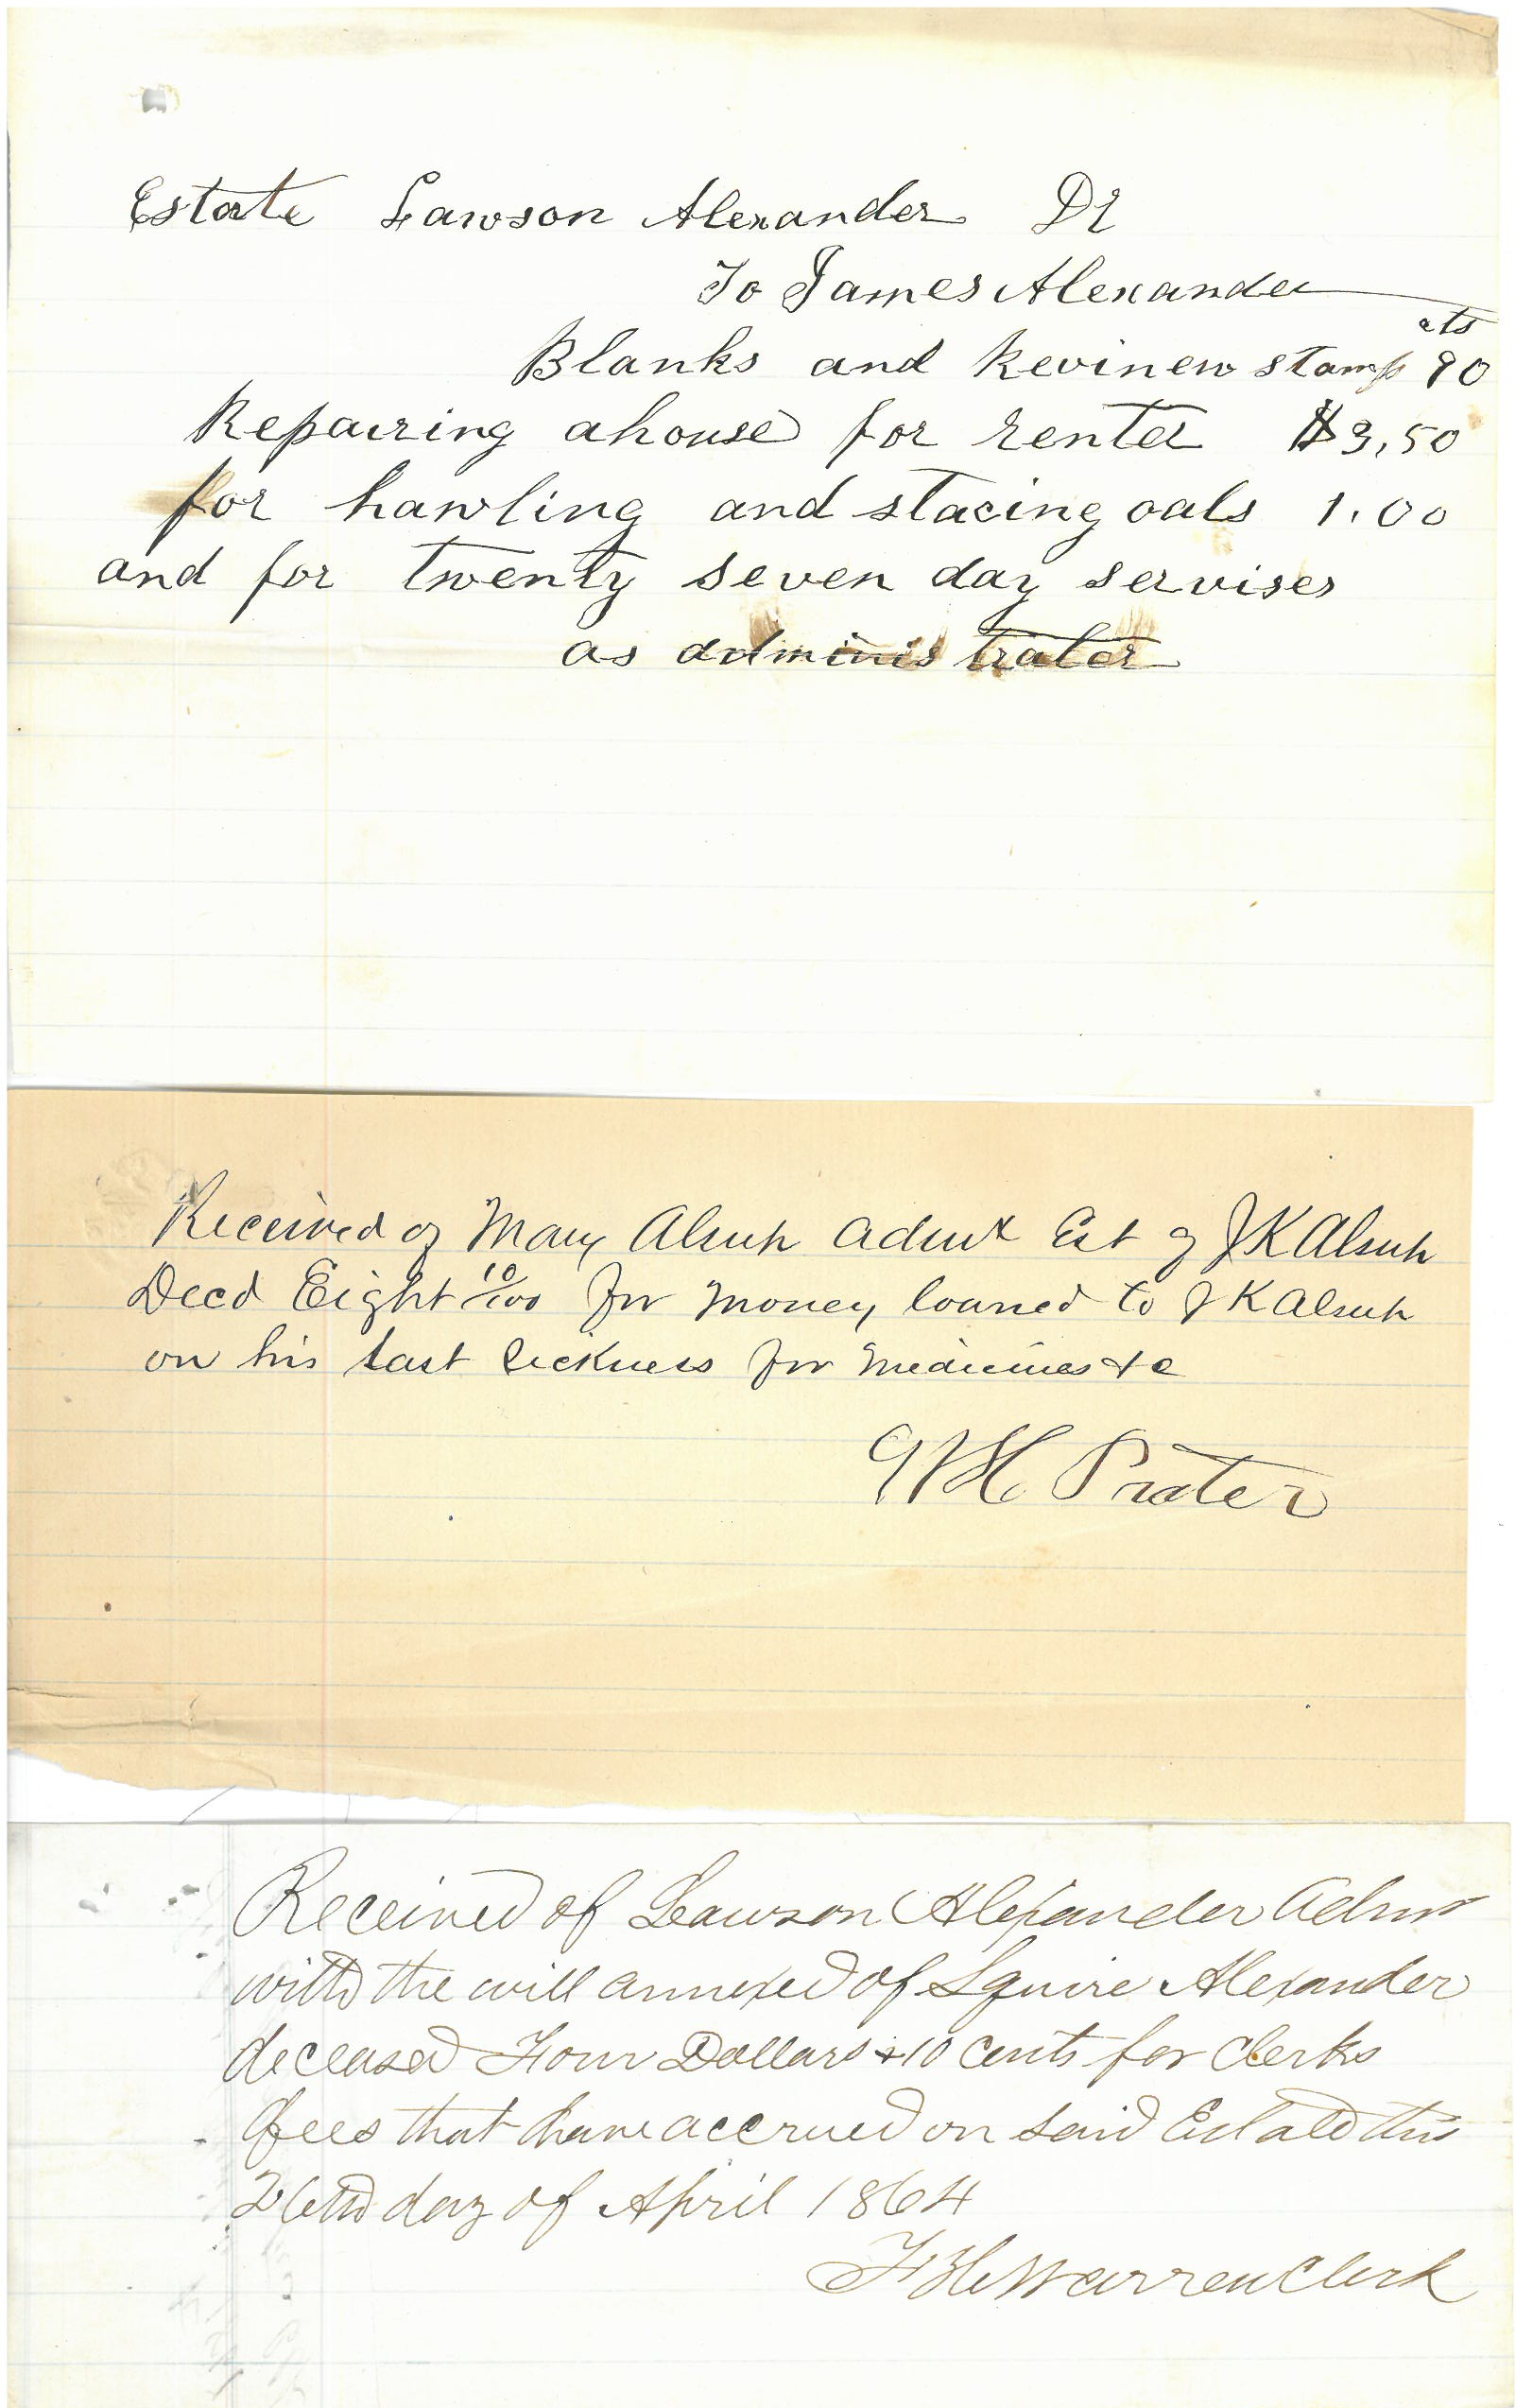 Estate Lawson Alexander Dr
To James Alexander
cts
Blanks and Revinew stamps 90
Repairing a house for renter $3,50
for hawling and stacing oats 1.00
and for twenty seven day servises
as administrater
Received of Mary Alsup Admx Est of J K Alsup
Decd Eight 10/100 for money loaned to J K Alsup
on his last sickness for medicines &c
Prater
Received of Lawson Alexander Admr
with the will annexed of Squire Alexander
deceased Four Dollars & 10 cents for Clerks
fees that have accrued on said Estate this
26th day of April 1864
F H Warren Clerk